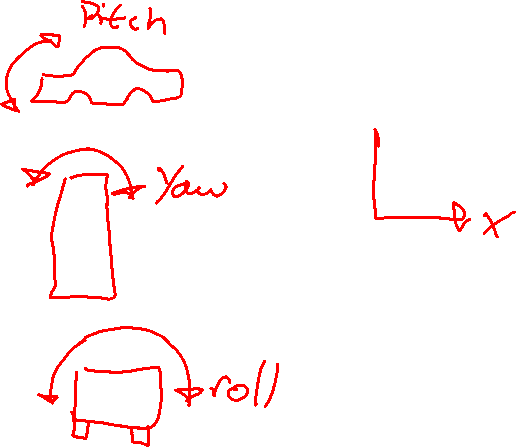 Pitch
Yaw
X
roll